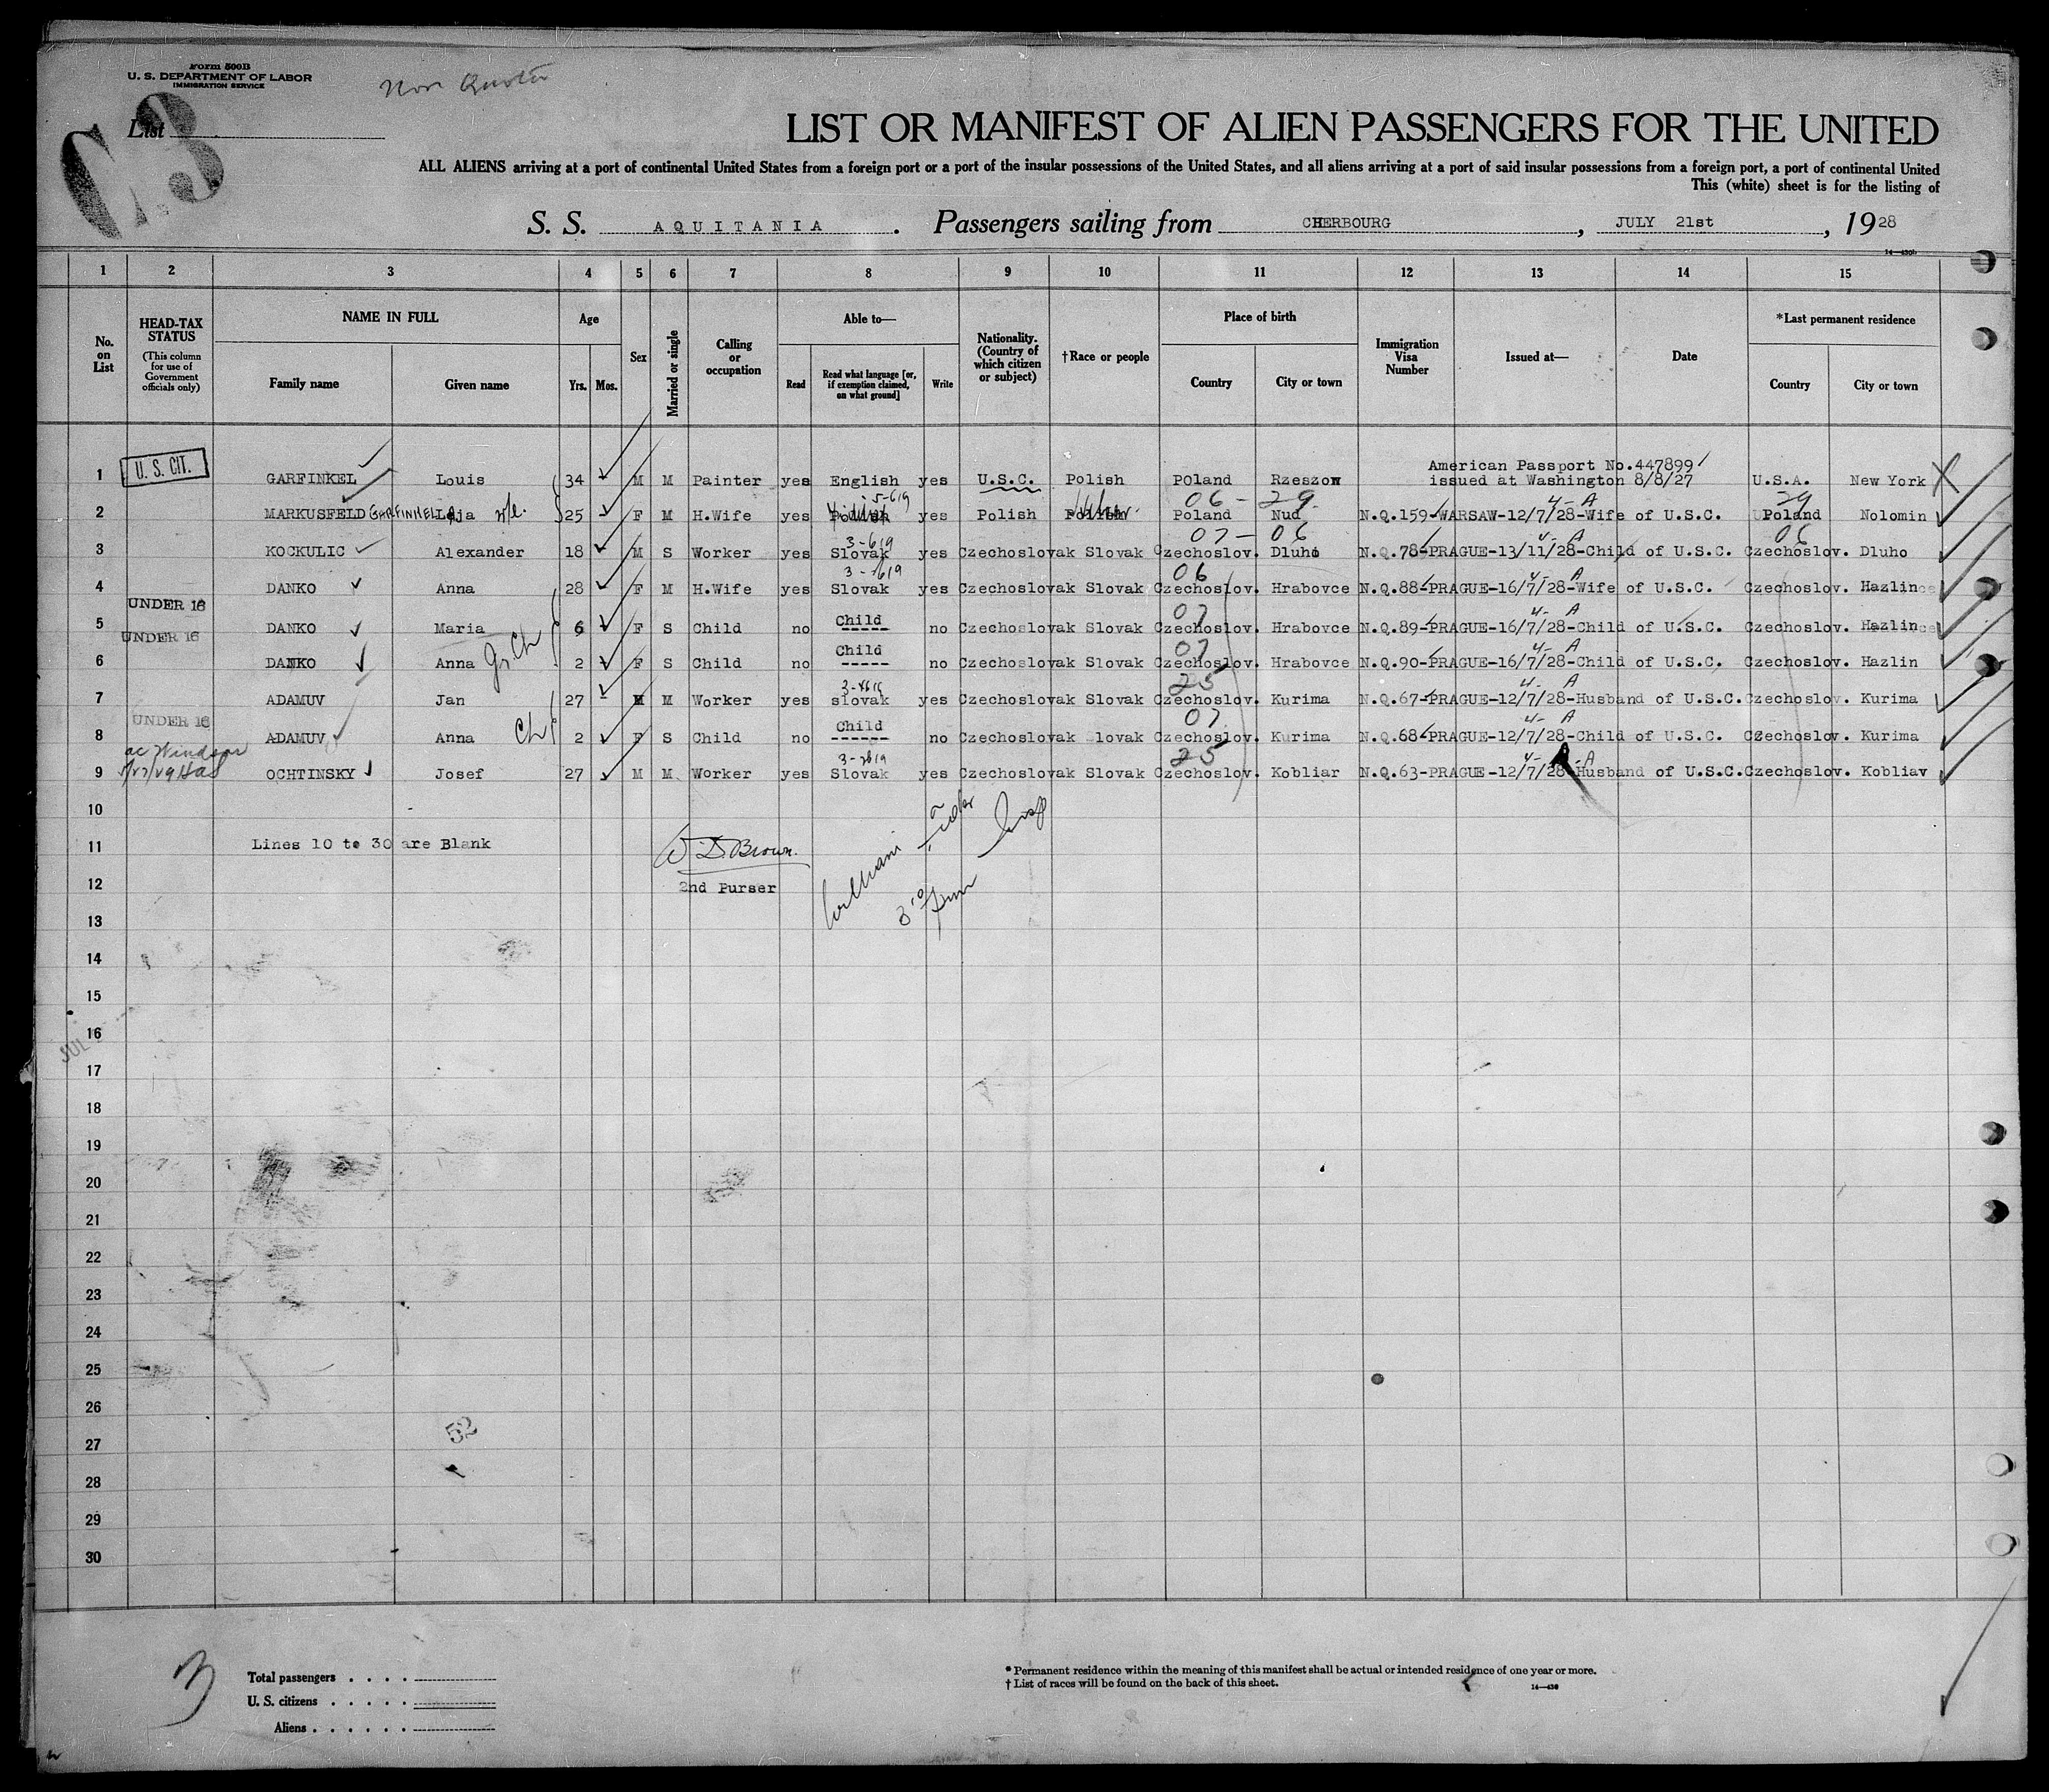 Form 500B
U. S. DEPARTMENT OF LABOR
IMMIGRATION SERVICE
Non Quota
List
LIST OR MANIFEST OF ALIEN PASSENGERS FOR THE UNITED
ALL ALIENS arriving at a port of continental United States from a foreign port or a port of the insular possessions of the United States, and all aliens arriving at a port of said insular possessions from a foreign port, a port of continental United
This (white) sheet is for the listing of
S. S. AQUITANIA . Passengers sailing from CHERBOURG , JULY 21st , 1928
14—430b
1 2 3 4 5 6 7 8 9 10 11 12 13 14 15
No. on List
HEAD-TAX STATUS
(This column for use of Government officials only)
NAME IN FULL
Family name Given name
Age
Yrs. Mos.
Sex
Married or single
Calling or occupation
Able to—
Read Read what language [or, if exemption claimed, on what ground] Write
Nationality. (Country of which citizen or subject)
†Race or people
Place of birth
Country City or town
Immigration Visa Number
Issued at—
Date
*Last permanent residence
Country City or town
American Passport No.447899
1 U. S. CIT. GARFINKEL Louis 34 M M Painter yes English yes U.S.C. Polish Poland Rzeszow issued at Washington 8/8/27 U.S.A. New York
5-619 06 - 29 4- A 29
2 MARKUSFELD GARFINKEL 25 F M H.Wife yes Yiddish yes Polish Poland Nud N.Q.159-WARSAW-12/7/28-Wife of U.S.C. Poland Nolomin
3-619 07 - 06 4- A 06
3 KOCKULIC Alexander 18 M S Worker yes Slovak yes Czechoslovak Slovak Czechoslov. Dluho N.Q.78-PRAGUE-13/11/28-Child of U.S.C. Czechoslov. Dluho
3-619 06 4- A
4 DANKO Anna 28 F M H.Wife yes Slovak yes Czechoslovak Slovak Czechoslov. Hrabovce N.Q.88-PRAGUE-16/7/28-Wife of U.S.C. Czechoslov. Hazlin
UNDER 16 Child 07 4- A
5 DANKO Maria 6 F S Child no ----- no Czechoslovak Slovak Czechoslov. Hrabovce N.Q.89-PRAGUE-16/7/28-Child of U.S.C. Czechoslov. Hazlin
UNDER 16 Child 07 4- A
6 DANKO Anna 2 F S Child no ----- no Czechoslovak Slovak Czechoslov. Hrabovce N.Q.90-PRAGUE-16/7/28-Child of U.S.C. Czechoslov. Hazlin
25 4- A
7 ADAMUV Jan 27 M M Worker yes slovak yes Czechoslovak Slovak Czechoslov. Kurima N.Q.67-PRAGUE-12/7/28-Husband of U.S.C. Czechoslov. Kurima
UNDER 16 Child 07 4- A
8 ADAMUV Anna Ch 2 F S Child no ------ no Czechoslovak Slovak Czechoslov. Kurima N.Q.68-PRAGUE-12/7/28-Child of U.S.C. Czechoslov. Kurima
Windsor 25 4- A
9 OCHTINSKY Josef 27 M M Worker yes Slovak yes Czechoslovak Slovak Czechoslov. Kobliar N.Q.63-PRAGUE-12/7/28-Husband of U.S.C. Czechoslov. Kobliav
10
11 Lines 10 to 30 are Blank W. D. Brown.
12 2nd Purser
13
14
15
16
JUL
17
18
19
20
21
22
23
24
25
26
27
52
28
29
30
3
Total passengers
U. S. citizens
Aliens
* Permanent residence within the meaning of this manifest shall be actual or intended residence of one year or more.
† List of races will be found on the back of this sheet.
14—430